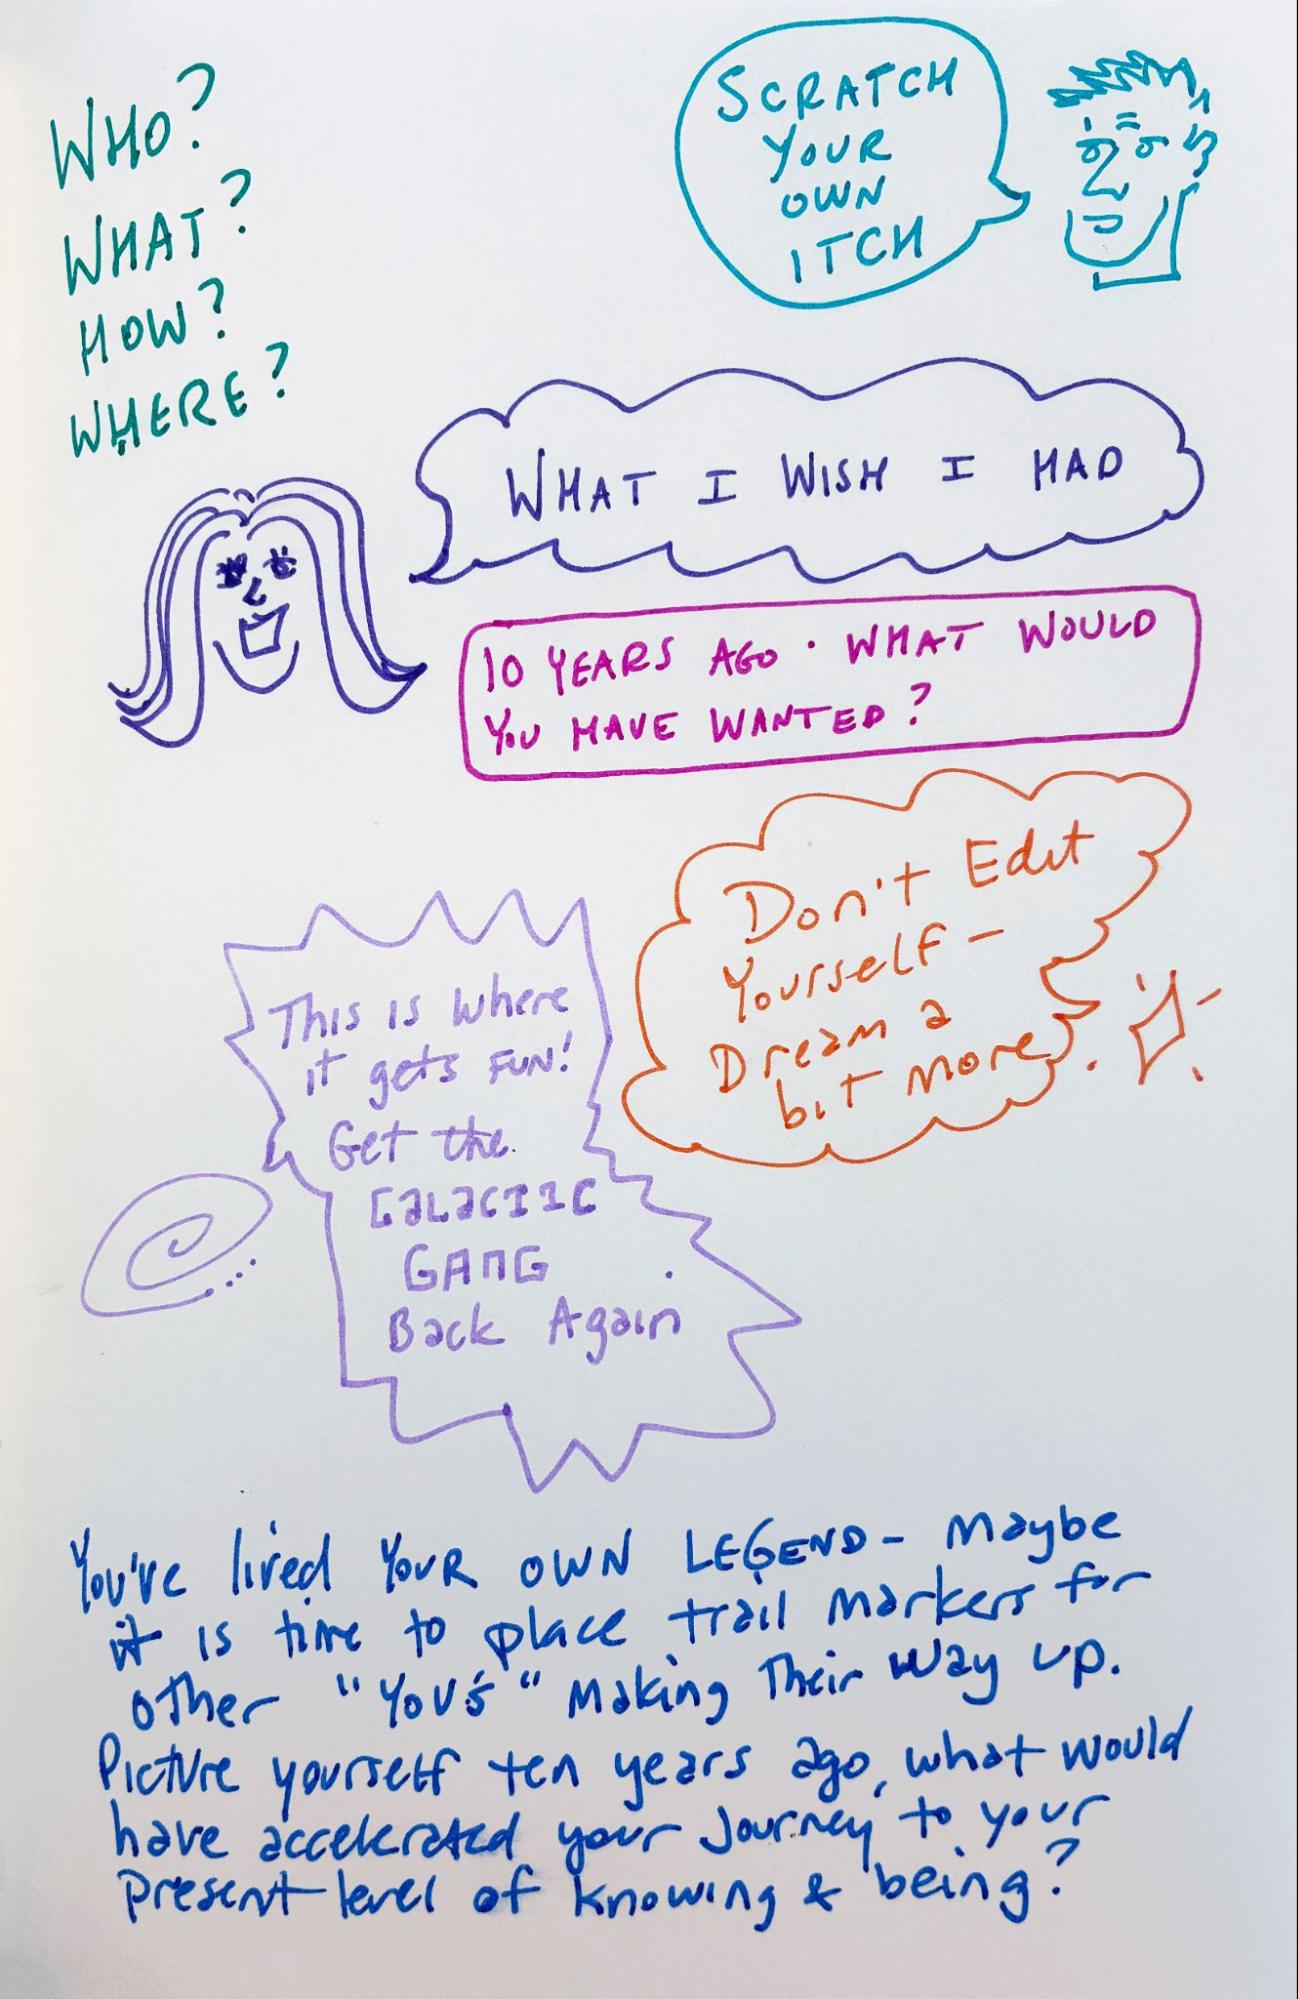 WHO?
WHAT?
HOW?
WHERE?
SCRATCH
YOUR
OWN
ITCH
WHAT I WISH I HAD
10 YEARS AGO · WHAT WOULD
YOU HAVE WANTED?
Don't Edit
Yourself -
Dream a
bit more
This is where
it gets FUN!
Get the
GALACTIC
GANG
Back Again
You've lived YOUR OWN LEGEND - Maybe
it is time to place trail markers for
other "YOU's" Making Their Way up.
Picture yourself ten years ago, what would
have accelerated your Journey to your
Present level of knowing & being?